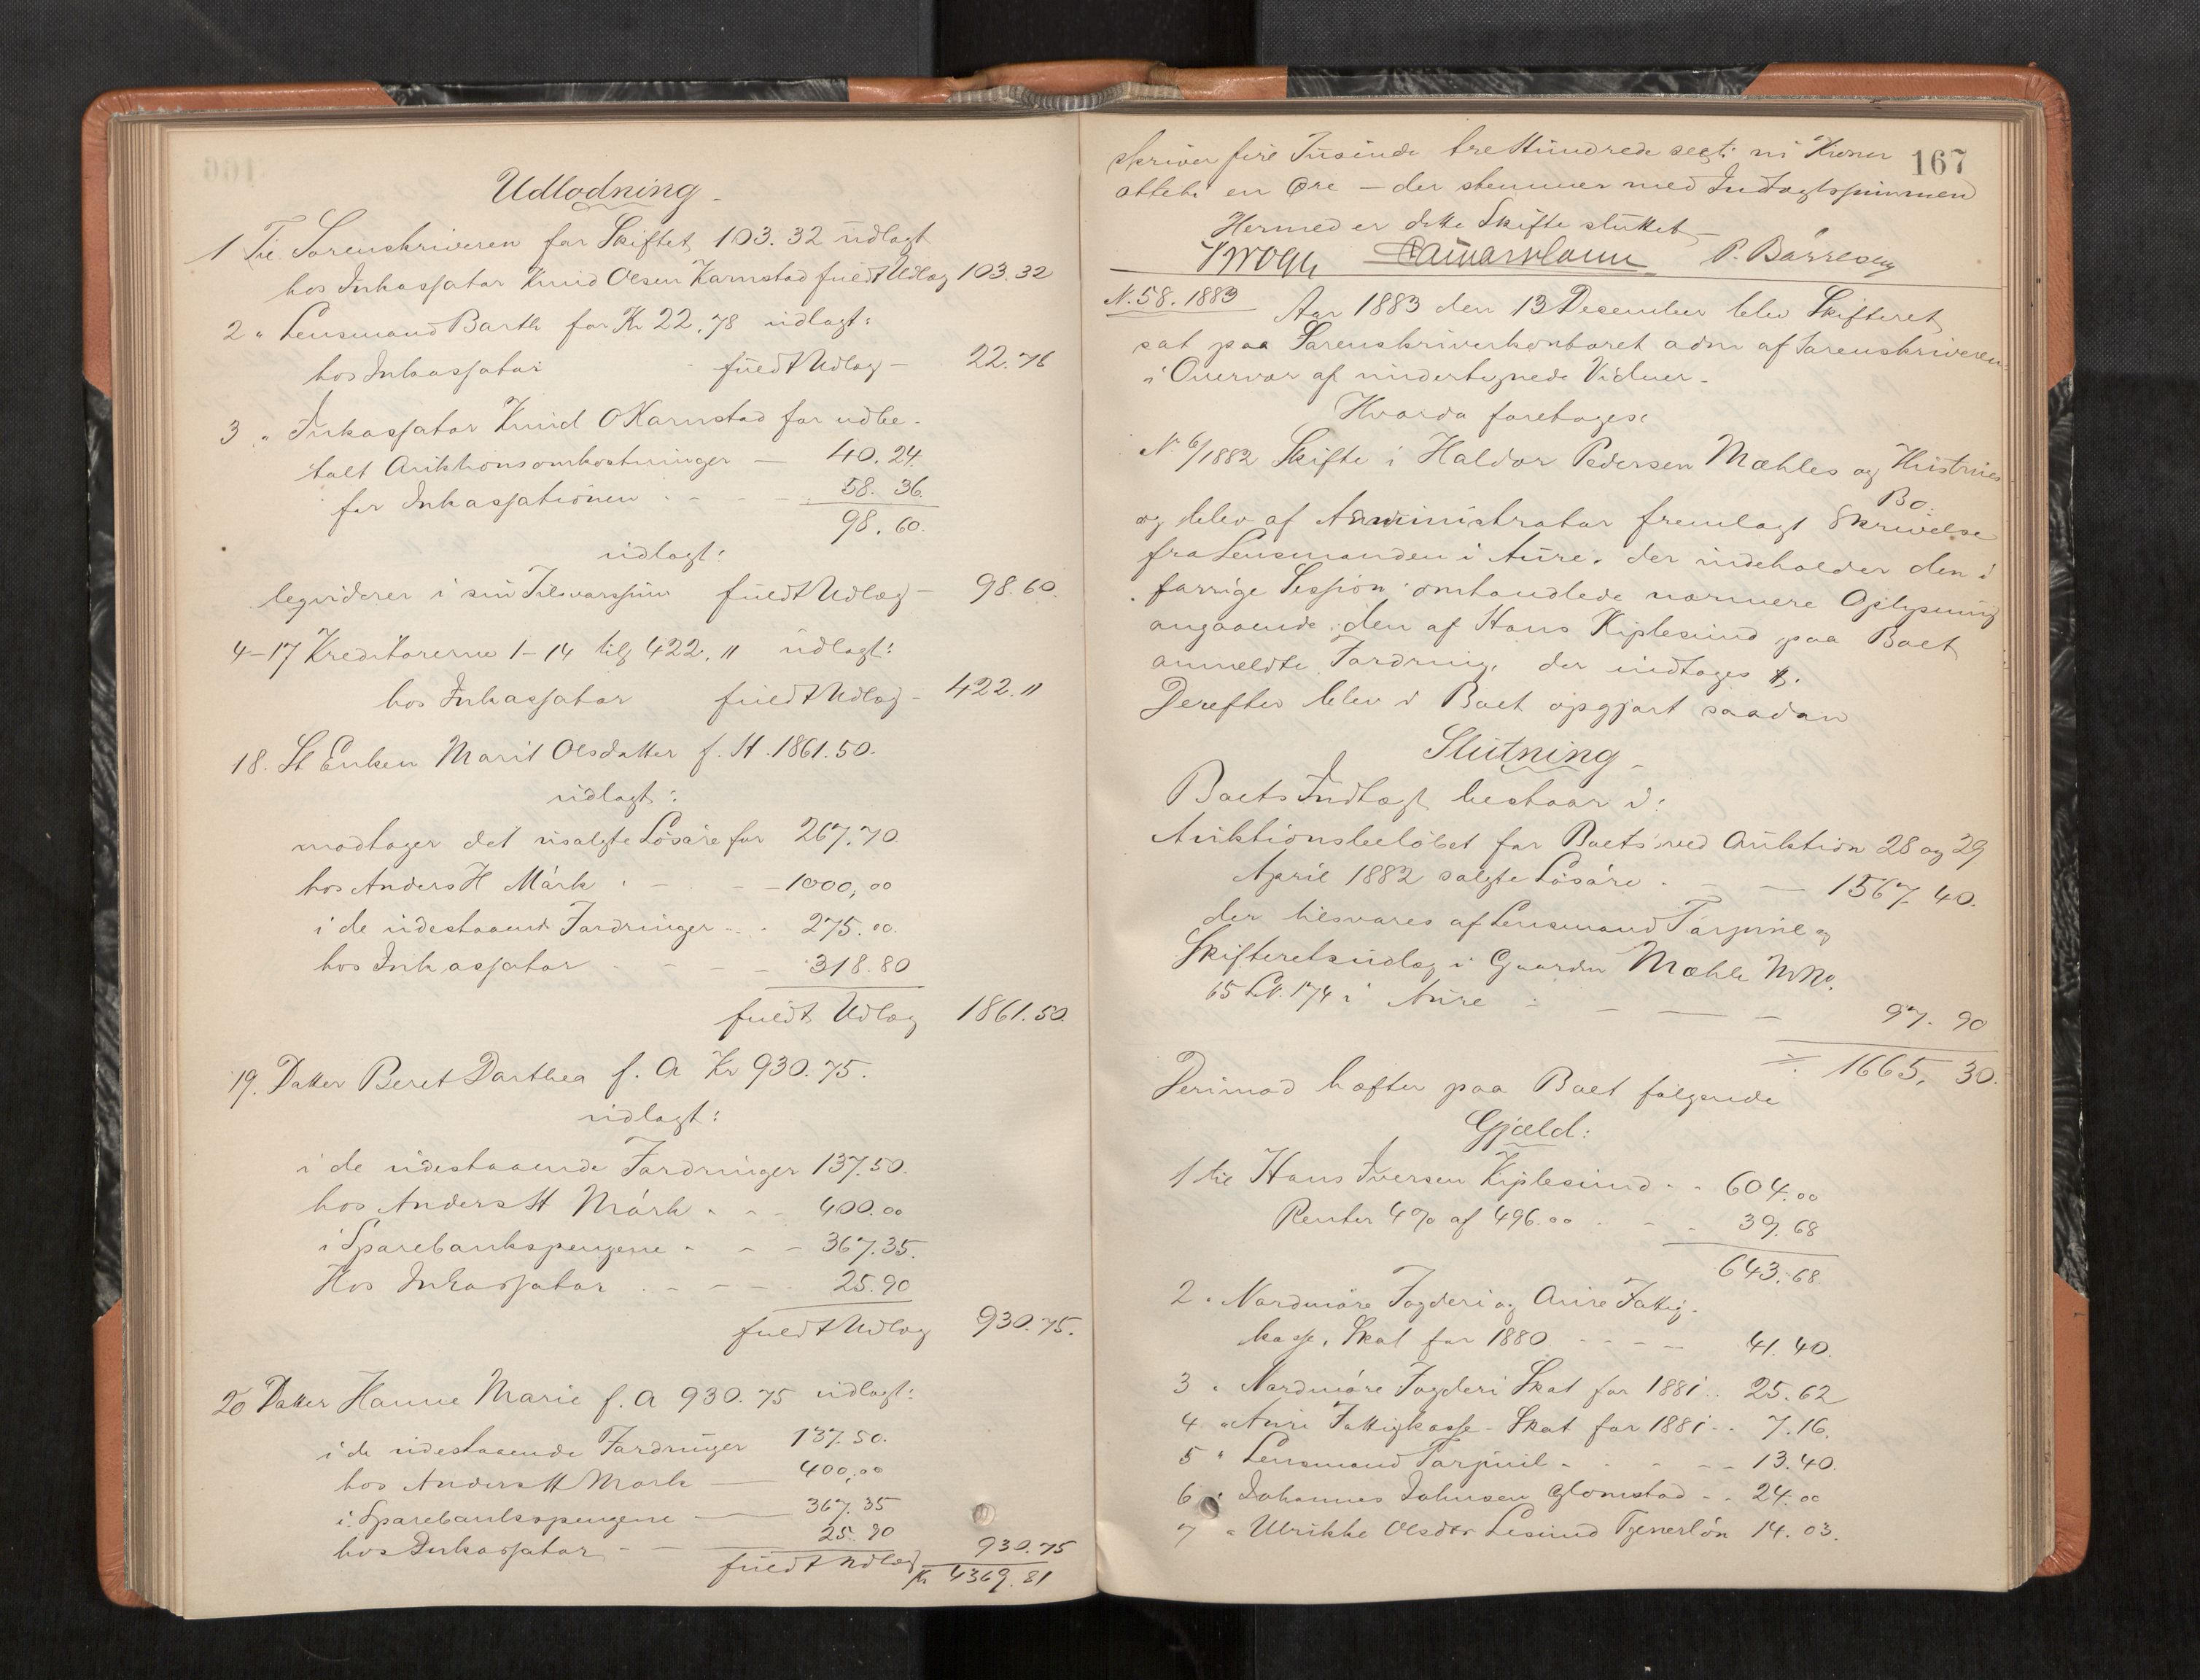 Udlodning
1 Til Sorenskriveren for Skiftet 103.32 udlagt
hos Inkassator Knud Olsen Karnstad fuldt Udlæg 103.32
2 " Lensmand Barth for Kr 22,78 udlagt:
hos Inkassator fuldt Udlæg - 22.76
3 " Inkassator Knud O Karnstad for udbe-
talt Auktionsomkostninger - 40.24
for Inkassationen - 58.36
98.60
udlagt:
leqviderer i sin Tilsvarssum fuldt Udlæg - 98.60.
4-17 Kreditorerne 1-14 tils 422." udlagt:
hos Inkassator fuldt Udlæg - 422."
18. Enken Marit Olsdatter f. H. 1861.50.
udlagt:
modtager det usolgte Løsøre for 267.70.
hos Anders H Mørk - 1000,00
i de udestaaende Fordringer - 275.00
hos Inkassator - 318.80
fuldt Udlæg 1861.50.
19. Datter Beret Dorthea f. A Kr 930.75.
udlagt:
i de udestaaende Fordringer 137.50.
hos Anders H Mørk - 400.00
i Sparebankspengene - 367.35.
Hos Inkassator - 25.90
fuldt Udlæg 930.75.
20 Datter Hanne Marie f. A 930.75 udlagt:
i de udestaaende Fordringer 137.50.
hos Anders H Mørk - 400,00
i Sparebankspengene - 367.35
hos Inkassator - 25.90
fuldt Udlæg 930.75
Kr 4369.81
167
skriver fire Tusinde tre Hundrede segti ni Kroner
otteti en Øre - der stemmer med Indtægtssummen
Hermed er dette Skifte sluttet
Krogh P. Børresen
N. 58. 1883
Aar 1883 den 13 December blev Skifteret
sat paa Sorenskriverkontoret adm af Sorenskriveren
i Overvær af undertegnede Vidner -
Hvorda foretoges:
No 6/1882 Skifte i Haldor Pedersen Mæhles og Hustrues
Bo.
og blev af Administrator fremlagt Skrivelse
fra Lensmanden i Aure. der indeholder den i
forrige Session omhandlede nærmere Oplysning
angaaende den af Hans Kiplesund paa Boet
anmeldte Fordring, der indtages
Derefter blev Boet opgjort saadan
Slutning -
Boets Indtægt bestaar i:
Auktionsbeløbet for Boets ved Auktion 28 og 29
April 1882 solgte Løsøre - 1567 40.
der tilsvares af Lensmand Tarjuul og
Skifteretsudlæg i Gaarden Mæhle MNo.
65 LN. 174 i Aure - 97. 90
1665, 30.
Derimod hæfter paa Boet følgende
Gjæld:
1 til Hans Iversen Kiplesund - 604.00
Renter 4% af 496.00 - 39.68
643.68
2 " Nordmøre Fogderi og Aure Fattig-
kasse, Skat for 1880 - 41.40.
3 " Nordmøre Fogderi Skat for 1881 - 25.62
4 " Aure Fattigkasse - Skat for 1881 - 7.16.
5 " Lensmand Tarjuul - 13.40.
6 " Johannes Johnsen Glomstad - 24.00
7 " Ulrikke Olsdtr Lesund Tjenerløn 14.03.